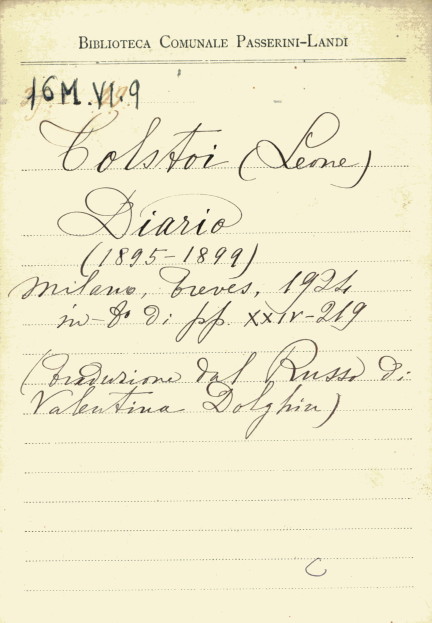 BIBLIOTECA COMUNALE PASSERINI-LANDI
16M.VI.9
Tolstoi (Leone)
Diario
(1895-1899)
Milano, Treves, 1924
in 8° di pp. XXIV-219
(Traduzione dal Russo di
Valentina Dolghin)
C